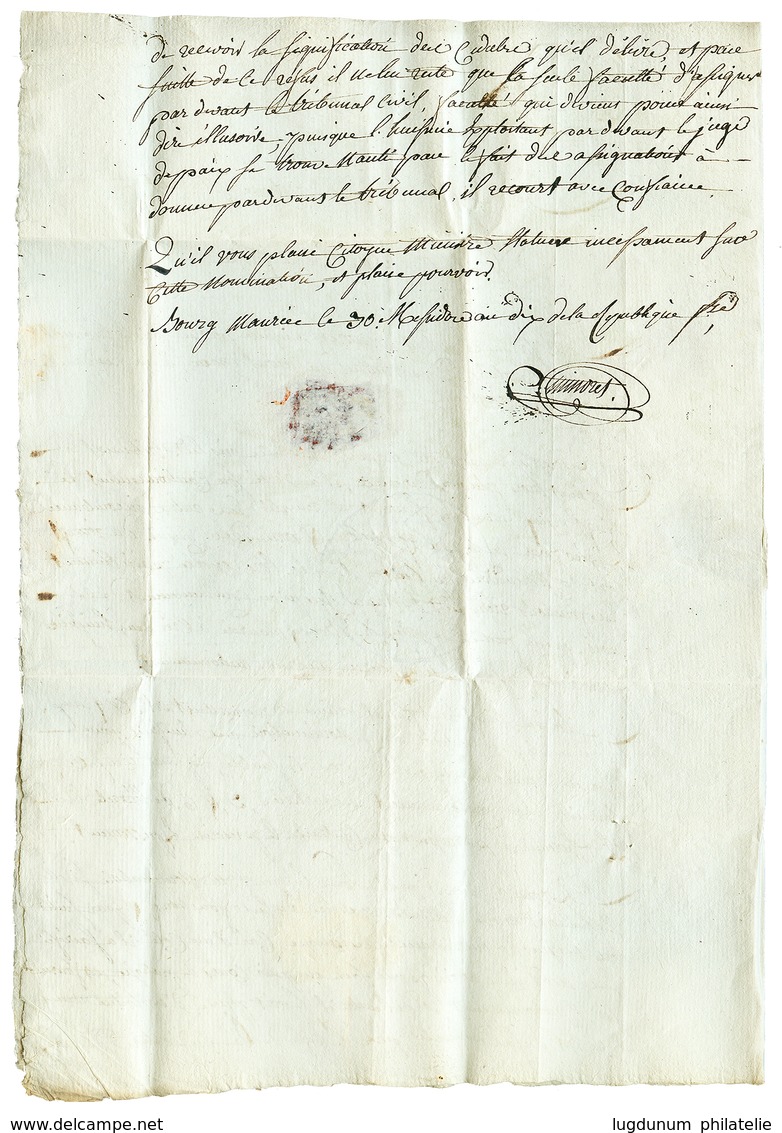 de recevoir la signification des Cedules qu'il délivre, et par
suitte de ce refus il ne lui reste que la seule faculté d'assigner
pardevant le tribunal Civil, faculté qui devient pour ainsi
dire illusoire, puisque l'huissier Exploitant pardevant le juge
de paix se trouve Nanti par le fait des assignations à
donner pardevant le tribunal, il recourt avec Confiance.
Qu'il vous plaise Citoyen Ministre Statuer incessament sur
Cette Nomination, et plaise pourvoir.
Bourg Maurice le 30. Messidor an dix de la Republique fse
www.delcampe.net
lugdunum philatelie